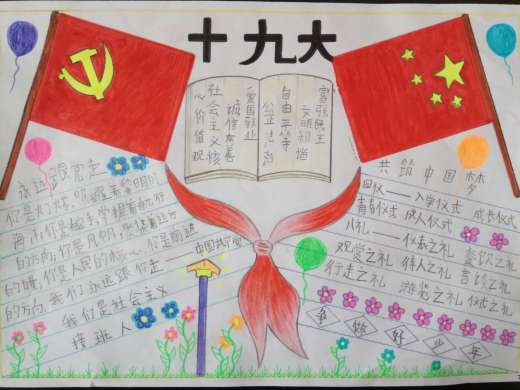 十九大
富强民主
文明和谐
自由平等
公正法治
爱国敬业
诚信友善
社会主义核
心价值观
永远跟党走
你是灯塔,照耀着黎明前的
你是舵手,掌握着航行
的方向,你是
你是人民的核心,你是前进
的方向,我们永远跟你走
——中国共产党
我们是社会主义
接班人
共筑中国梦
四仪——入学仪式 成长仪式
青春仪式 成人仪式
八礼——仪表之礼 餐饮之礼
观赏之礼 待人之礼 言谈之礼
行走之礼 游览之礼 仪式之礼
争做好少年